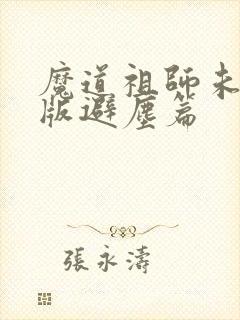 魔道祖師未
版避塵篇
張永濤